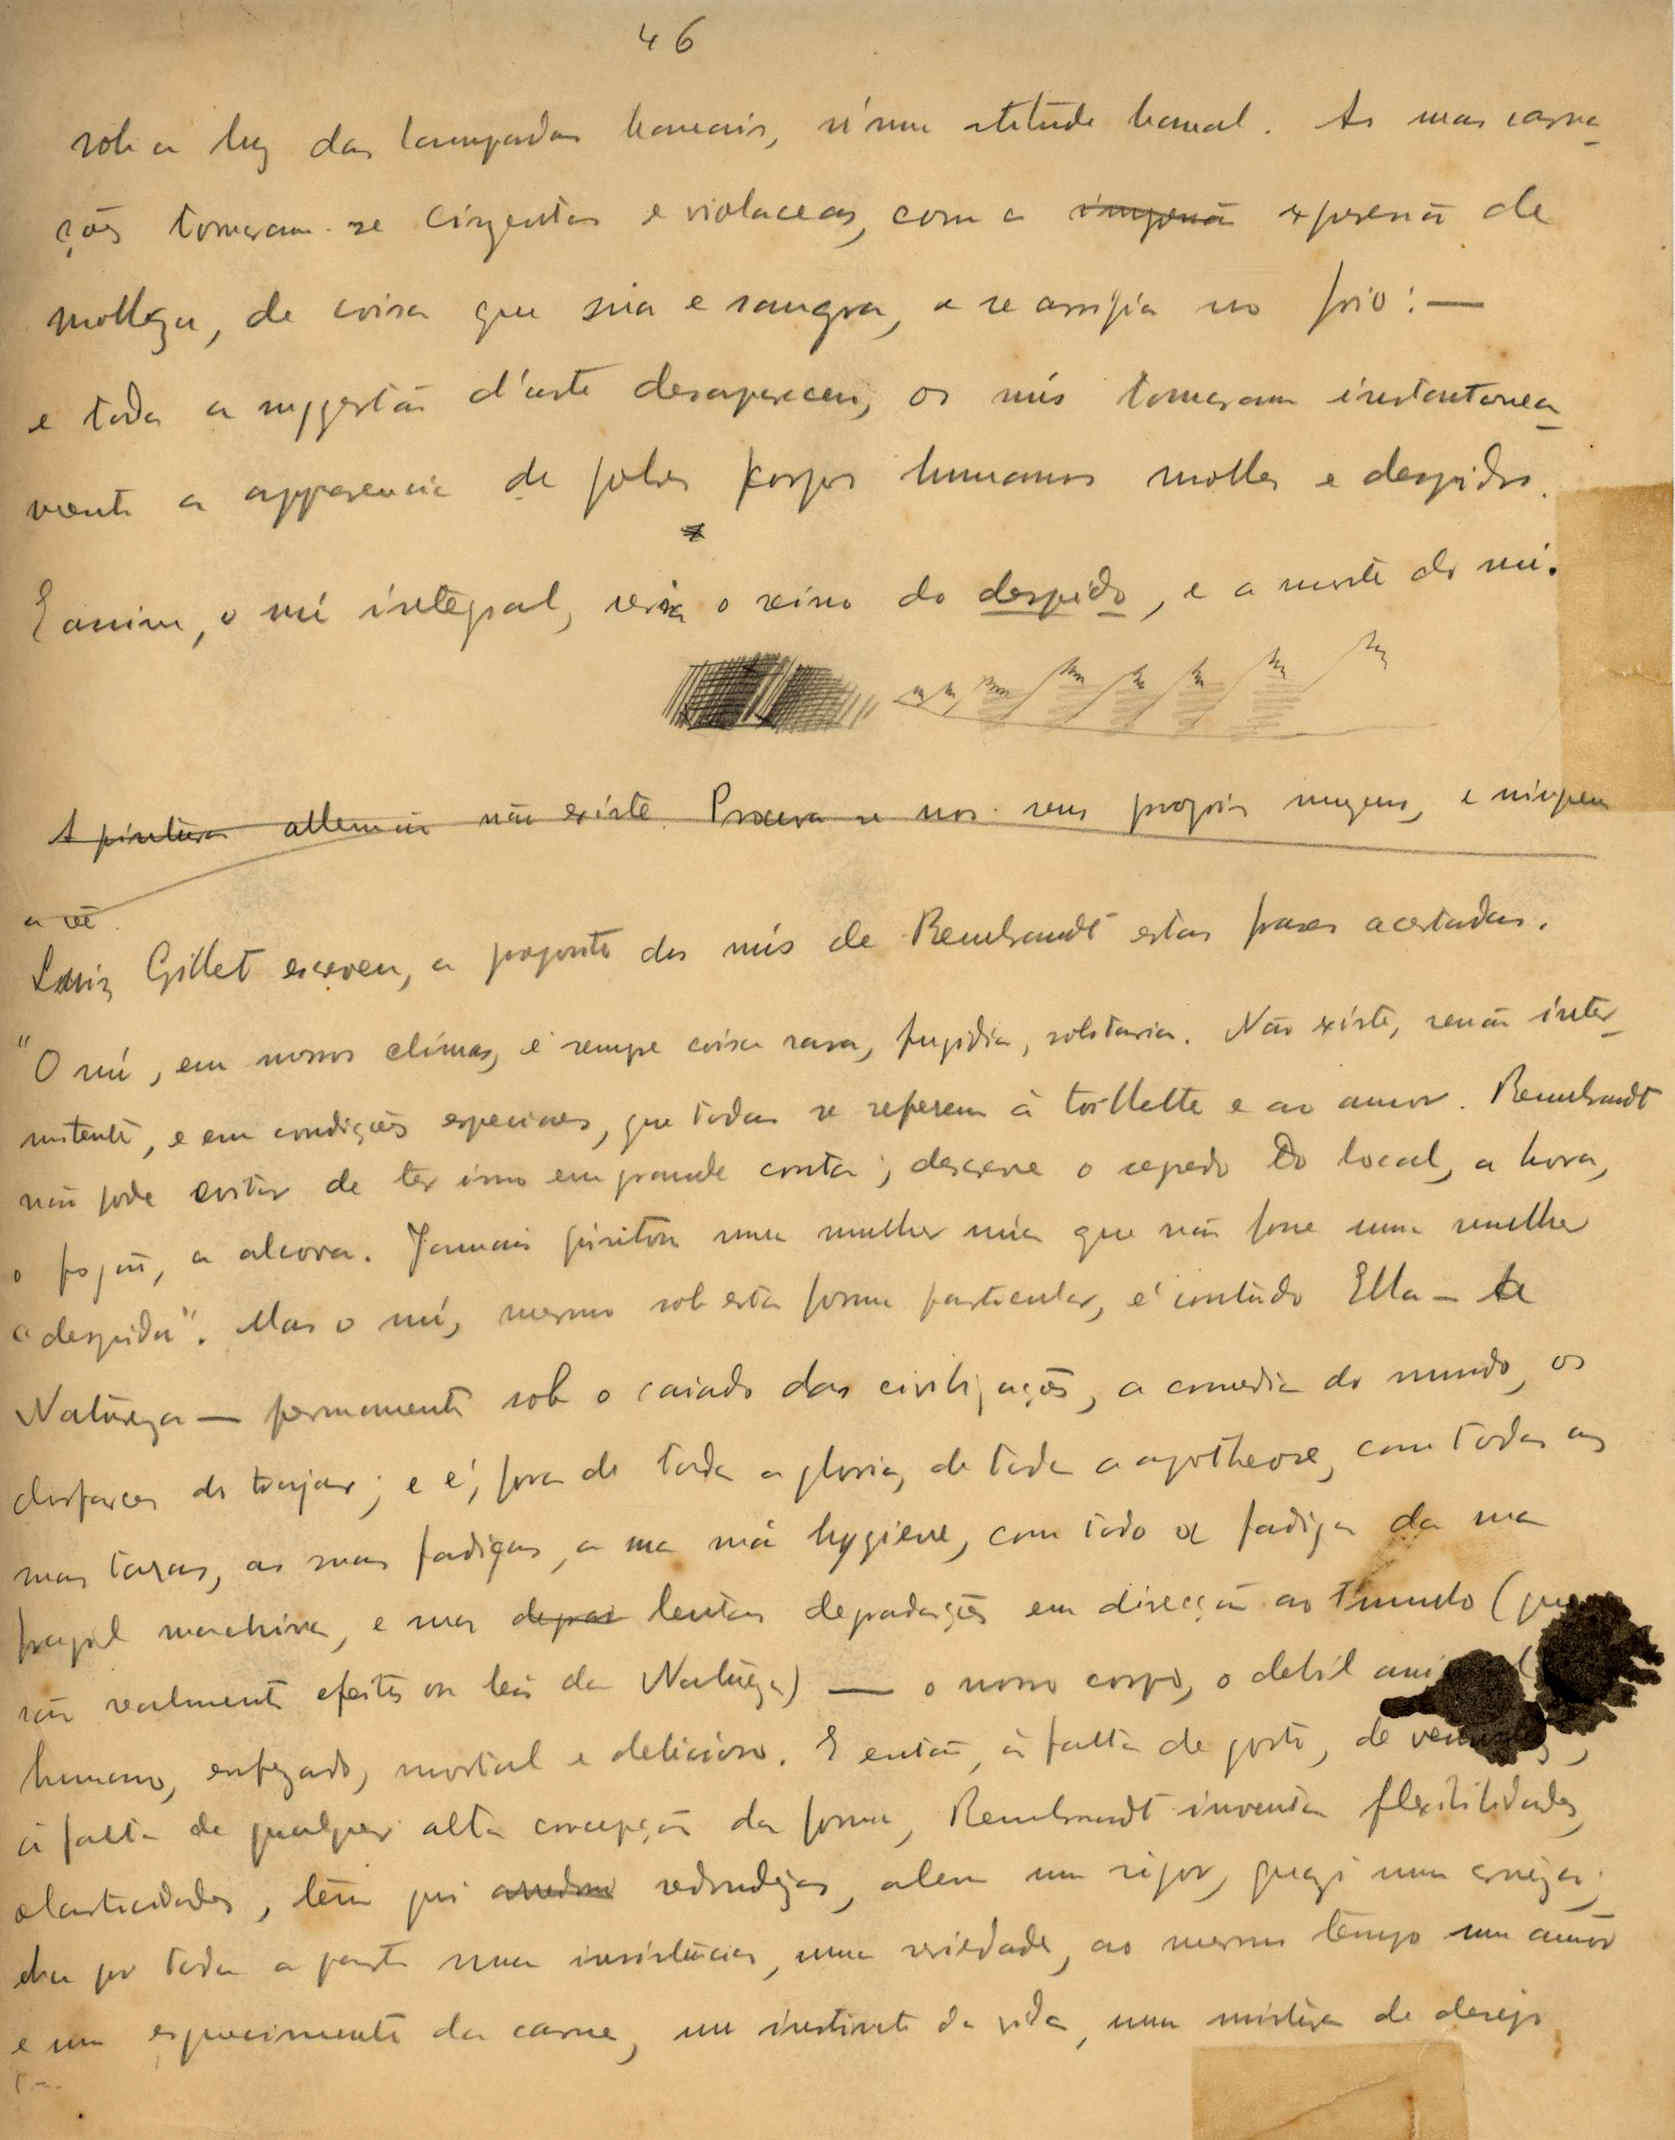 46
sob a luz das lampadas banais, n'uma atitude banal. As suas carna-
ções tornaram-se cinzentas e violaceas, com a expressão de
molleza, de coisa que sua e sangra, e se arrepia no frio: —
e toda a suggestão d'arte desapareceu, os nús tomaram instantanea-
mente a apparencia de pobres corpos humanos molles e despidos.
E assim, o nú integral, seria o reino do despido, e a morte do nú.
A pintura allemã não existe. Procura-se nos seus proprios museus, e ninguem
a vê.
Louis Gillet escreveu, a proposito dos nús de Rembrandt estas frases acertadas.
"O nú, em nossos climas, é sempre coisa rara, fugidia, solitaria. Não existe, senão inter-
mitente, e em condições especiaes, que todas se referem á toillette e ao amor. Rembrandt
não pode evitar de ter isso em grande conta; descreve o segredo do local, a hora,
o fogão, a alcova. Jamais pintou uma mulher núa que não fosse uma mulher
"despida". Mas o nú, mesmo sob esta forma particular, é contudo Ella — a
Natureza — permanente sob o caiado das civilizações, a comedia do mundo, os
disfarces do trajar; e é, fora de toda a gloria, de toda a apotheose, com todas as
suas taras, as suas fadigas, a sua má hygiene, com toda a fadiga da sua
fragil machina, e suas lentas degradações em direcção ao tumulo (que
são realmente efeitos ou leis da Natureza) — o nosso corpo, o debil
humano, enfezado, mortal e delicioso. E então, á falta de gosto, de
á falta de qualquer alta concepção da forma, Rembrandt inventa flexibilidades,
elasticidades, têm redondezas, alem um rigor, quazi uma
por toda a parte uma insistencia, uma seriedade, ao mesmo tempo um amor
e um esquecimento da carne, um instincto da vida, uma mistura de desejo